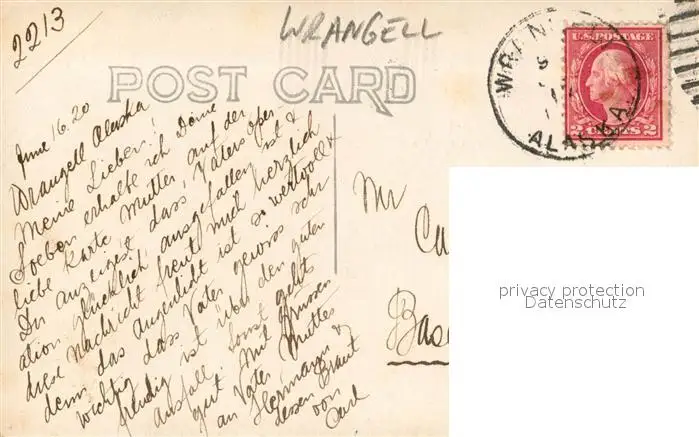 2213
WRANGELL
POST CARD
WRAN
ALASKA
U.S. POSTAGE
2 CENTS 2
June 16. 20
Wrangell Alaska
Meine Lieben!
Soeben erhalte ich Deine
liebe Karte Mutter auf der
Du anzeigst dass Vaters Oper-
ation glücklich ausgefallen ist &
diese Nachricht freut mich herzlich
denn das Augenlicht ist so wertvoll &
wichtig dass Vater gewiss sehr
freudig ist über den guten
Ausfall. Sonst gehts
gut. Mit Grüssen
an Vater Mutter
Hermann &
dessen Braut
von
Carl
Mr
Ca
Base
privacy protection
Datenschutz